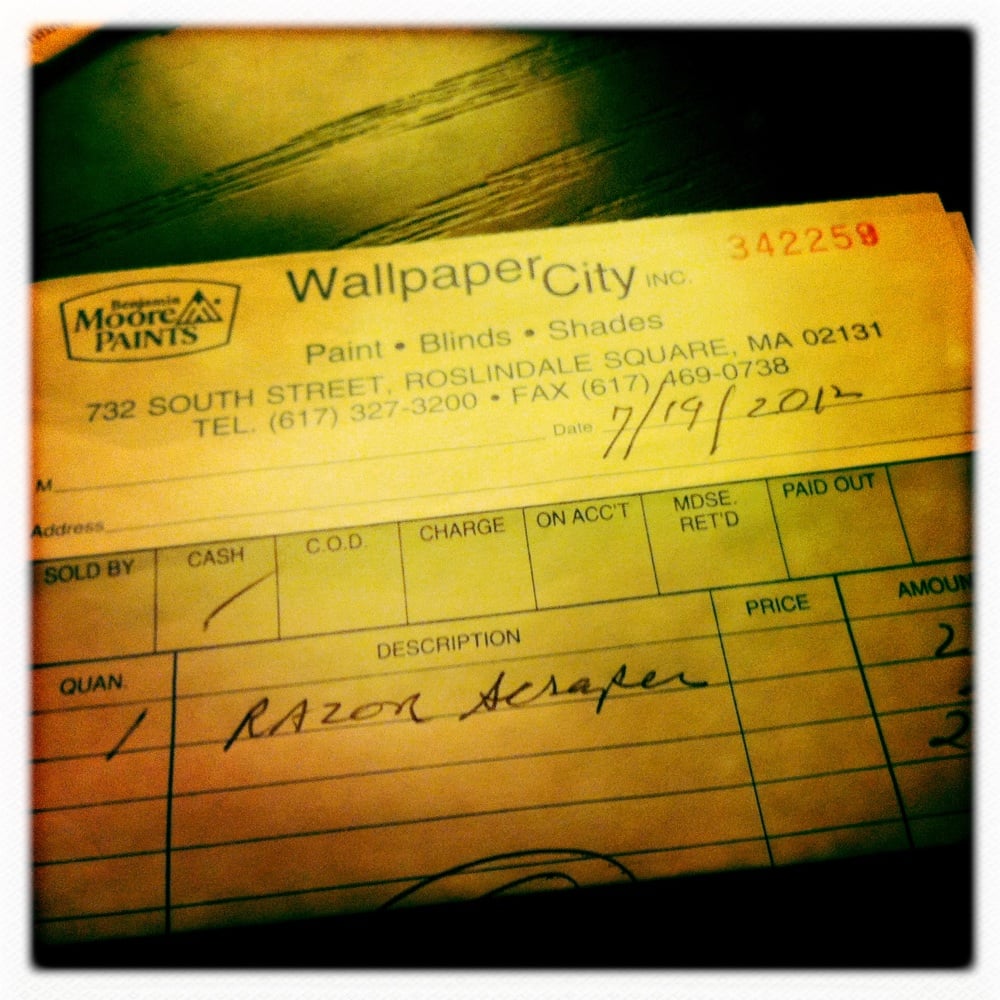 342259
Benjamin
Moore
PAINTS
WallpaperCity INC.
Paint • Blinds • Shades
732 SOUTH STREET, ROSLINDALE SQUARE, MA 02131
TEL. (617) 327-3200 • FAX (617) 469-0738
Date 7/19/2012
M
Address
SOLD BY CASH C.O.D. CHARGE ON ACC'T MDSE. RET'D PAID OUT
QUAN. DESCRIPTION PRICE AMOUN
1 RAZOR Scraper 2
2